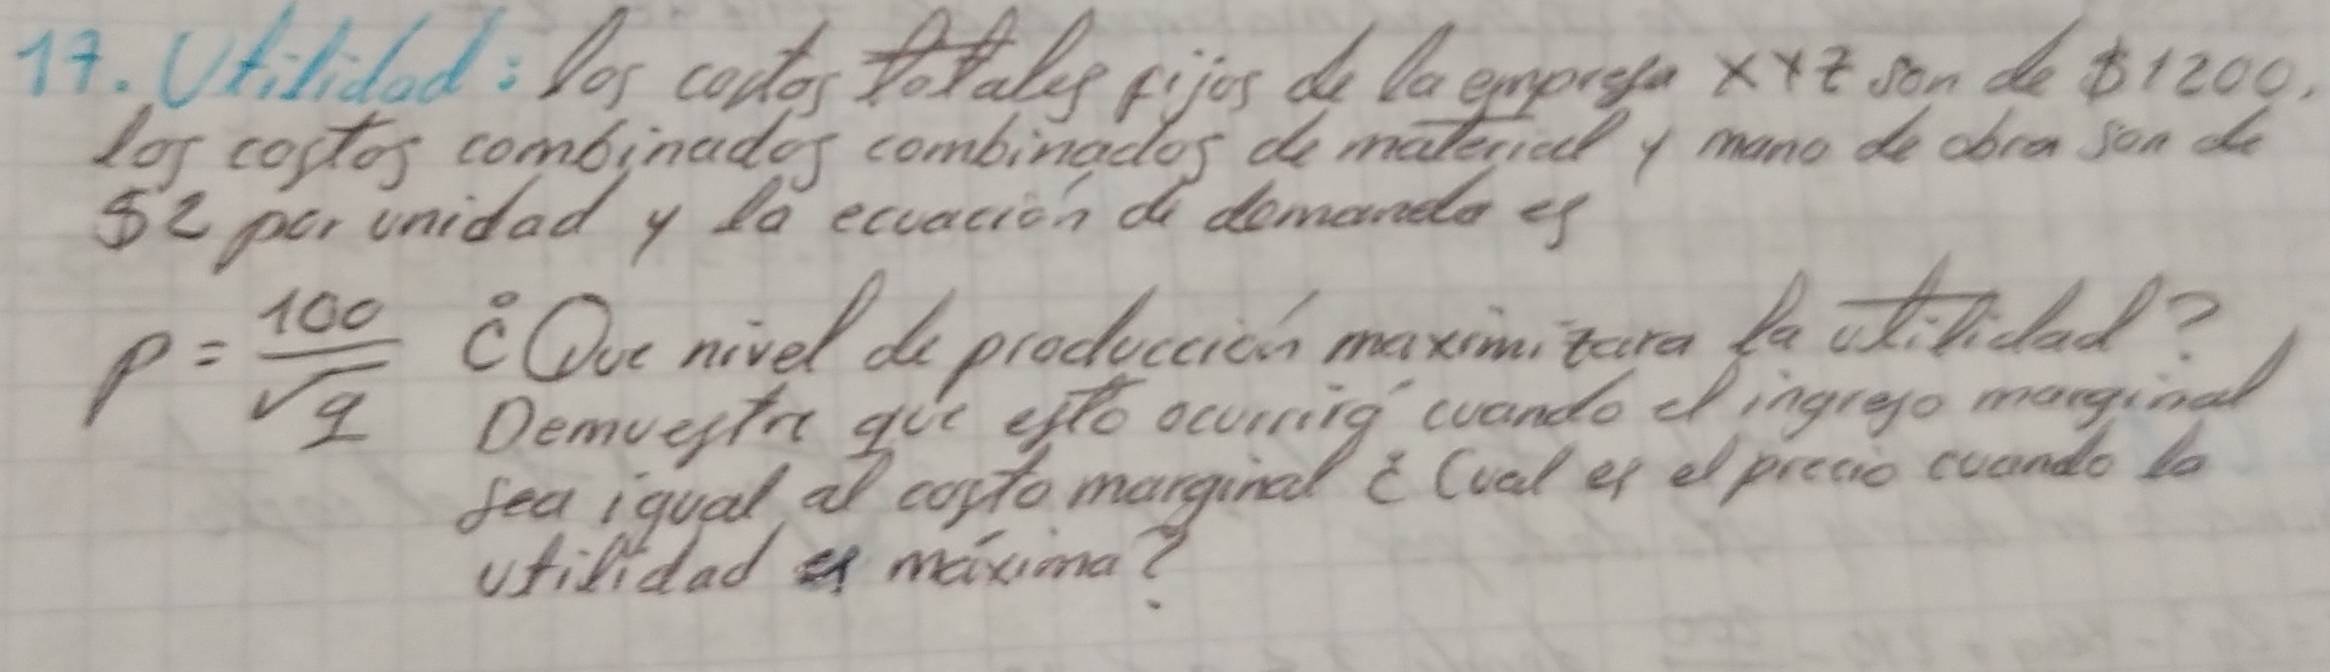 17. Utilidad: los costos totales fijos de la empresa XYZ son de $1200.
los costos combinados combinados de material y mano de obra son de
$2 por unidad y la ecuación de demanda es
p = 100/√q ¿Que nivel de producción maximizara la utilidad?
Demuestre que esto ocurrirá cuando el ingreso marginal
sea igual al costo marginal ¿Cual es el precio cuando la
utilidad es máxima?